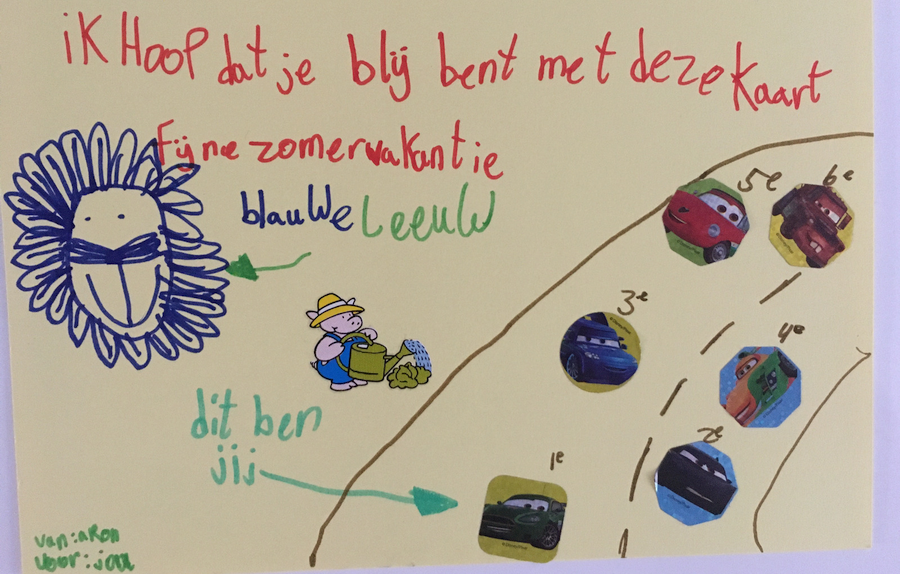 iK Hoop dat je blij bent met deze kaart
Fijne zomervakantie
blauwe Leeuw
5e
6e
3e
4e
dit ben
jij
2e
1e
van: aron
voor: jaa